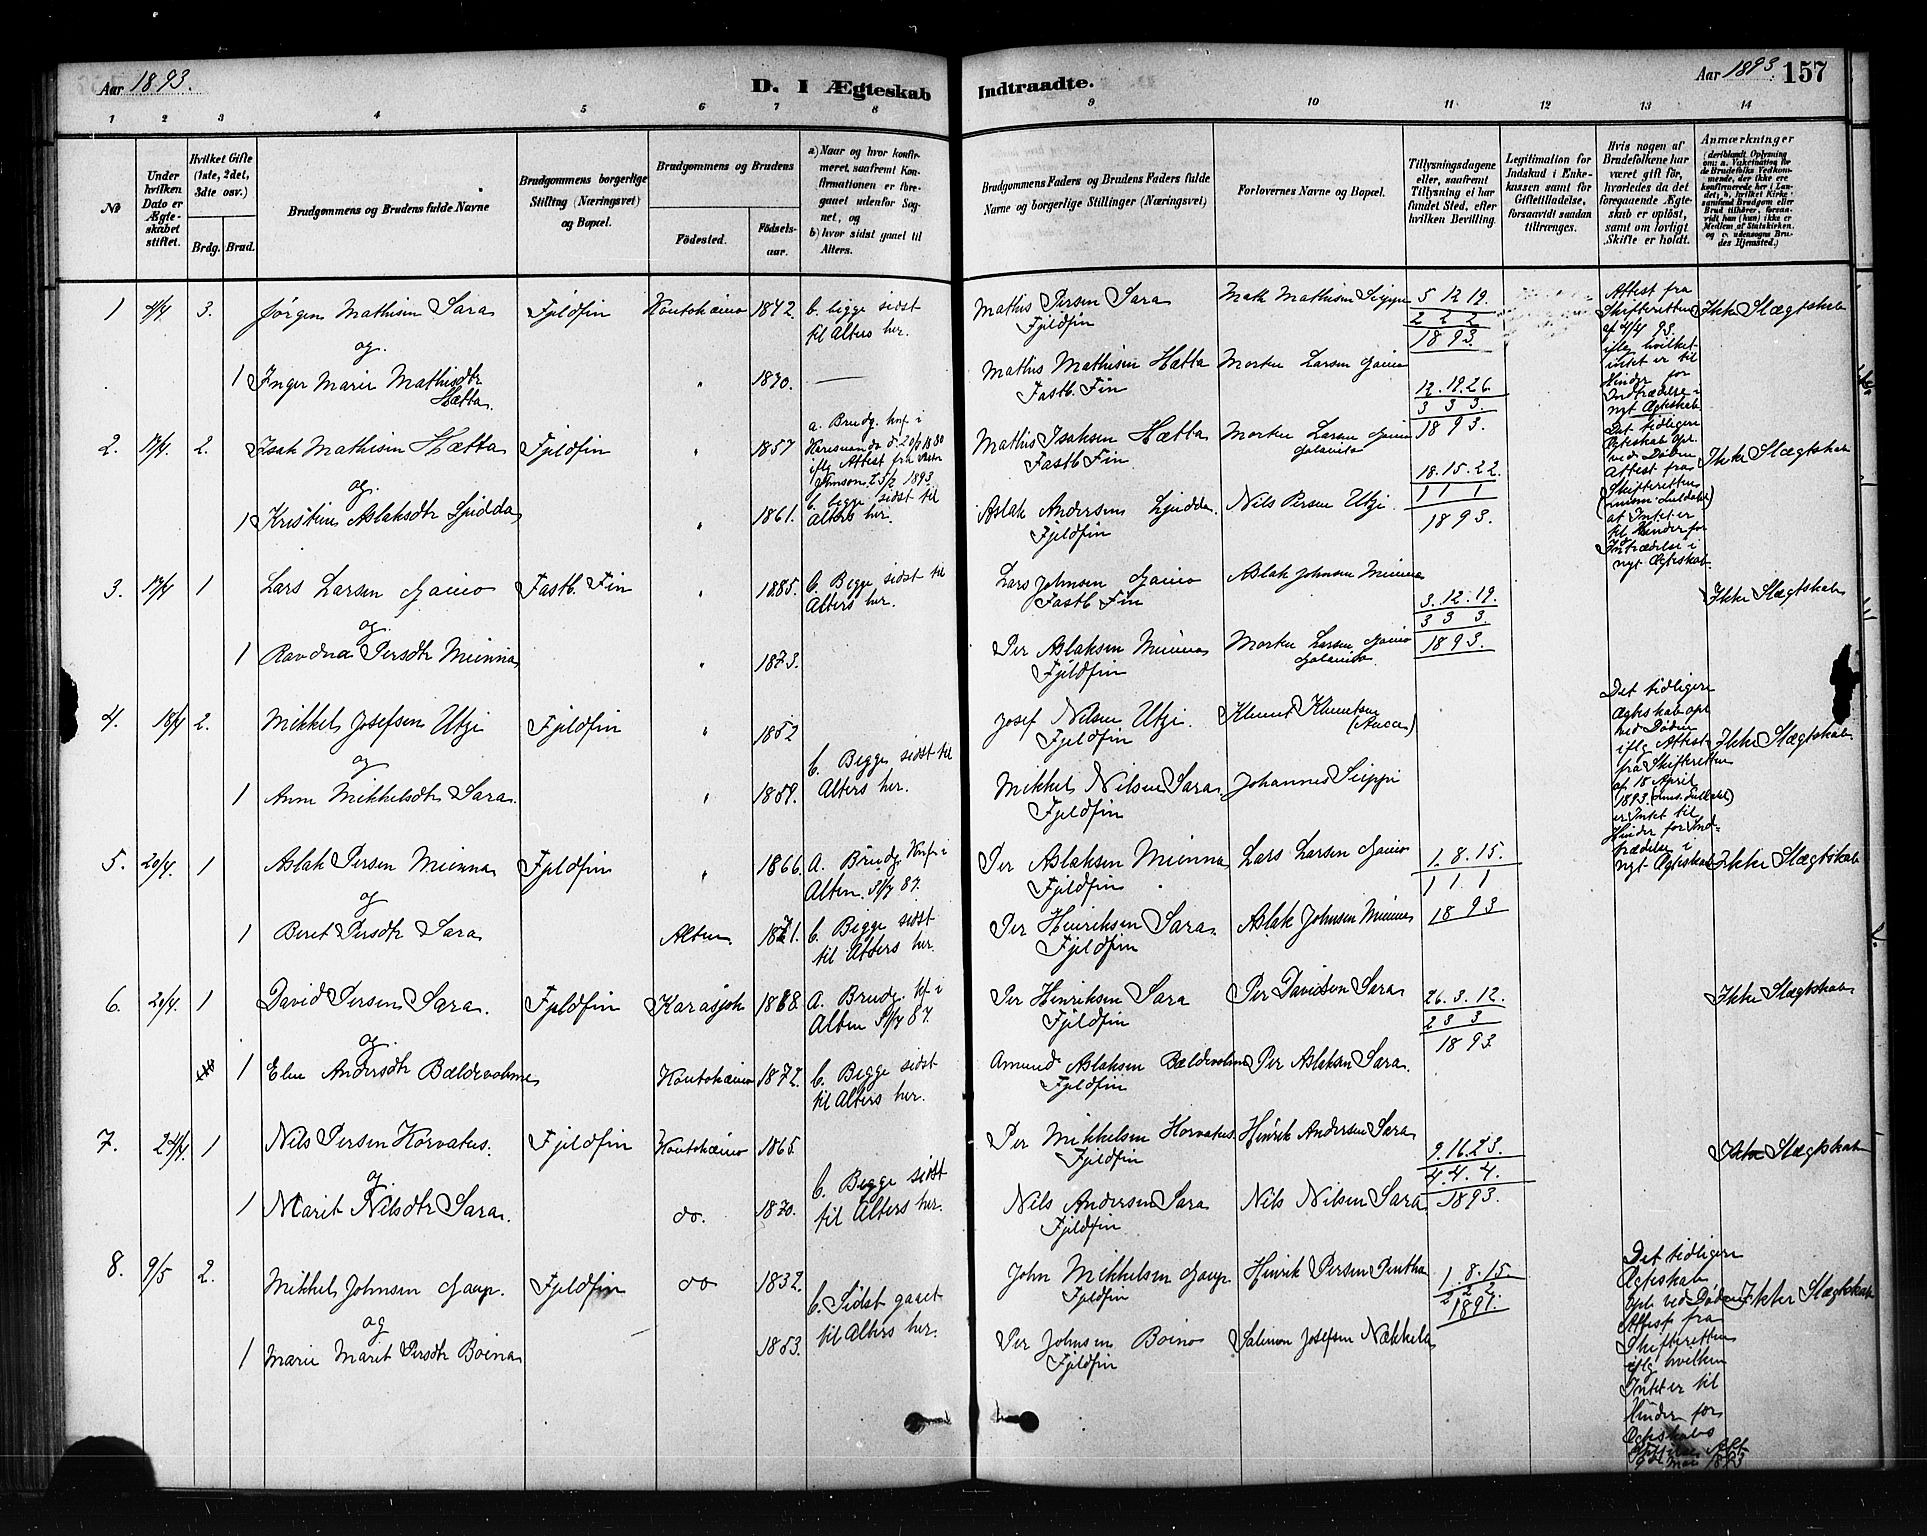 Aar 1893.
D. I Ægteskab
Indtraadte.
Aar 1893. 157
1 2 3 4 5 6 7 8 9 10 11 12 13 14
No
Under hvilken Dato er Ægteskabet stiftet.
Hvilket Gifte (1ste, 2det, 3die osv.)
Brdg. Brud.
Brudgommens og Brudens fulde Navne
Brudgommens borgerlige Stilling (Næringsvei) og Bopæl.
Brudgommens og Brudens
Födested.
Födsels-aar.
a) Naar og hvor konfirmeret, saafremt Konfirmationen er foregaaet udenfor Sognet, og
b) hvor sidst gaaet til Alters.
Brudgommens Faders og Brudens Faders fulde Navne og borgerlige Stillinger (Næringsvei)
Forlovernes Navne og Bopæl.
Tillysningsdagene eller, saafremt Tillysning ei har fundet Sted, efter hvilken Bevilling.
Legitimation for Indskud i Enkekassen samt for Giftetilladelse, forsaavidt saadan tiltrænges.
Hvis nogen af Brudefolkene har været gift før, hvorledes da det foregaaende Ægteskab er oplöst, samt om lovligt Skifte er holdt.
Anmærkninger
(deriblandt Oplysning om: a. Vaksination for de Brudefolks Vedkommende, der ikke ere konfirmerede her i Landet; b. hvilket Kirkesamfund Brudgom eller Brud tilhører, forsaavidt han (hun) ikke er Medlem af Statskirken. og c. udensogns Brudes Hjemsted.)
1 4/4 3. Jørgen Mathisen Sara Fjeldfin Koutokæino 1842. b. begge sidst til Alters her.
Mathis Persen Sara Fjeldfin
5 12 19.
2 2 2
1893.
Attest fra Skifteretten af 4/4 93. iflg hvilket intet er til Hinder for Indtrædelse i nyt Ægteskab
Ikke Slægtskab
og
1 Inger Marie Mathisdtr Hætta. " 1870. —
Mathis Mathisen Hætta Fastb. Fin
Morten Larsen Gaino
12. 19. 26.
3 3 3.
1893.
2. 17/4 2. Isak Mathisen Hætta Fjeldfin " 1857
a. Brudg. knf. i Karesuando d. 20/7 1880 iflg Attest fra Pastor Johnson 25/2 1893
b. begge sidst til Alters her.
Mathis Isaksen Hætta Fastb. Fin
Morten Larsen Gaino
18. 15. 22.
1 1 1
1893.
Det tidligere Ægteskab opl. ved Døden Attest fra Skifteretten at Intet er til Hinder for Indtrædelse i nyt Ægteskab
Ikke Slægtskab
og
1 Kristine Aslaksdtr Spidda " 1861.
Aslak Andersen Fjeldfin
Nils Persen Utzi.
3. 17/4 1 Lars Larsen Gaino Fastb. Fin " 1885. b. Begge sidst til Alters her.
Lars Johnsen Gaino Fastb. Fin
Aslak Johnsen Mienna
3. 12. 19.
3 3 3.
1893.
Ikke Slægtskab
og
1 Ravdna Persdtr Mienna " 1873.
Per Aslaksen Mienna Fjeldfin
Morten Larsen Gaino
4. 18/4 2. Mikkel Josefsen Utzi Fjeldfin " 1852
b. Begge sidst til Alters her.
Josef Nilsen Utzi. Fjeldfin
Klemet Klemetsen
Det tidligere Ægteskab opl ved Døden iflg Attest fra Skifteretten af 18 April 1893. er Intet til Hinder for Indtrædelse i nyt Ægteskab
Ikke Slægtskab
og
1 Anne Mikkelsdtr Sara. " 1859.
Mikkel Nilsen Sara Fjeldfin
Johannes Seippi
5. 20/4 1 Aslak Persen Mienna Fjeldfin " 1866. a. Brudg. Knf. i Alten. 31/7 87.
Per Aslaksen Mienna Fjeldfin
Lars Larsen Gaino
1. 8. 15.
1 1. 1
1893
Ikke Slægtskab
og
1 Beret Persdtr Sara Alten 1871. b. Begge sidst til Alters her.
Per Henriksen Sara. Fjeldfin
Aslak Johnsen Mienna
6. 20/4. 1 David Persen Sara. Fjeldfin Karasjok 1868. a. Brudg. kf. i Alten 31/7 87.
Per Henriksen Sara Fjeldfin
Per Davidsen Sara
26. 3. 12.
2 3 3
1893
Ikke Slægtskab
og
1 Elen Andersdtr Bældevolme Koutokæino 1872. b. Begge sidst til Alters her.
Amund Aslaksen Bældevolme Fjeldfin
Per Aslaksen Sara.
7. 24/4. 1 Nils Persen Korvatus. Fjeldfin Koutokæino 1865.
b. Begge sidst til Alters her.
Per Mikkelsen Korvatus. Fjeldfin
Henrik Andersen Sara
9. 16. 23.
4. 4. 4.
1893.
Ikke Slægtskab
og
1 Marit Nilsdtr Sara. do. 1870.
Nils Andersen Sara Fjeldfin
Nils Nilsen Sara
8. 9/5 2. Mikkel Johnsen Gaup. Fjeldfin do 1832.
b. Sidst gaaet til Alters her.
John Mikkelsen Gaup Fjeldfin
Henrik Persen Pentha
1. 8. 15.
2 2 2.
1891.
Det tidligere Ægteskab opl. ved Døden Attest fra Skifteretten iflg hvilken Intet er til Hinder for Ægteskabs
Mai 1893
Ikke Slægtskab
og
1 Marie Marit Persdtr Boine 1853.
Per Johnsen Boino Fjeldfin
Salomon Josefsen Nækkela